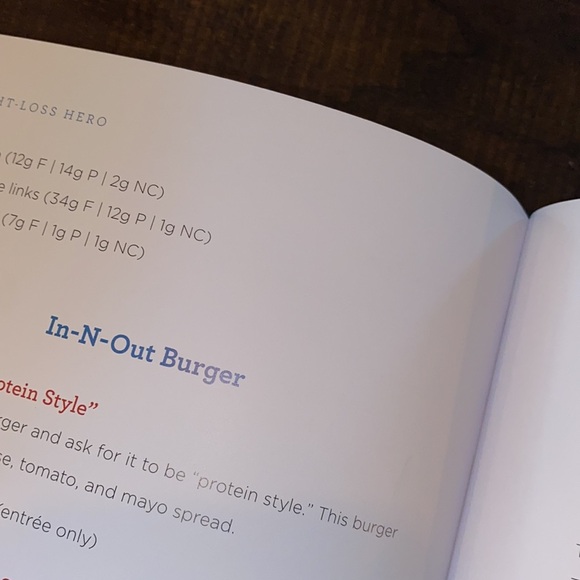 HT-LOSS HERO
(12g F | 14g P | 2g NC)
links (34g F | 12g P | 1g NC)
(7g F | 1g P | 1g NC)
In-N-Out Burger
otein Style”
ger and ask for it to be “protein style.” This burger
se, tomato, and mayo spread.
(entrée only)